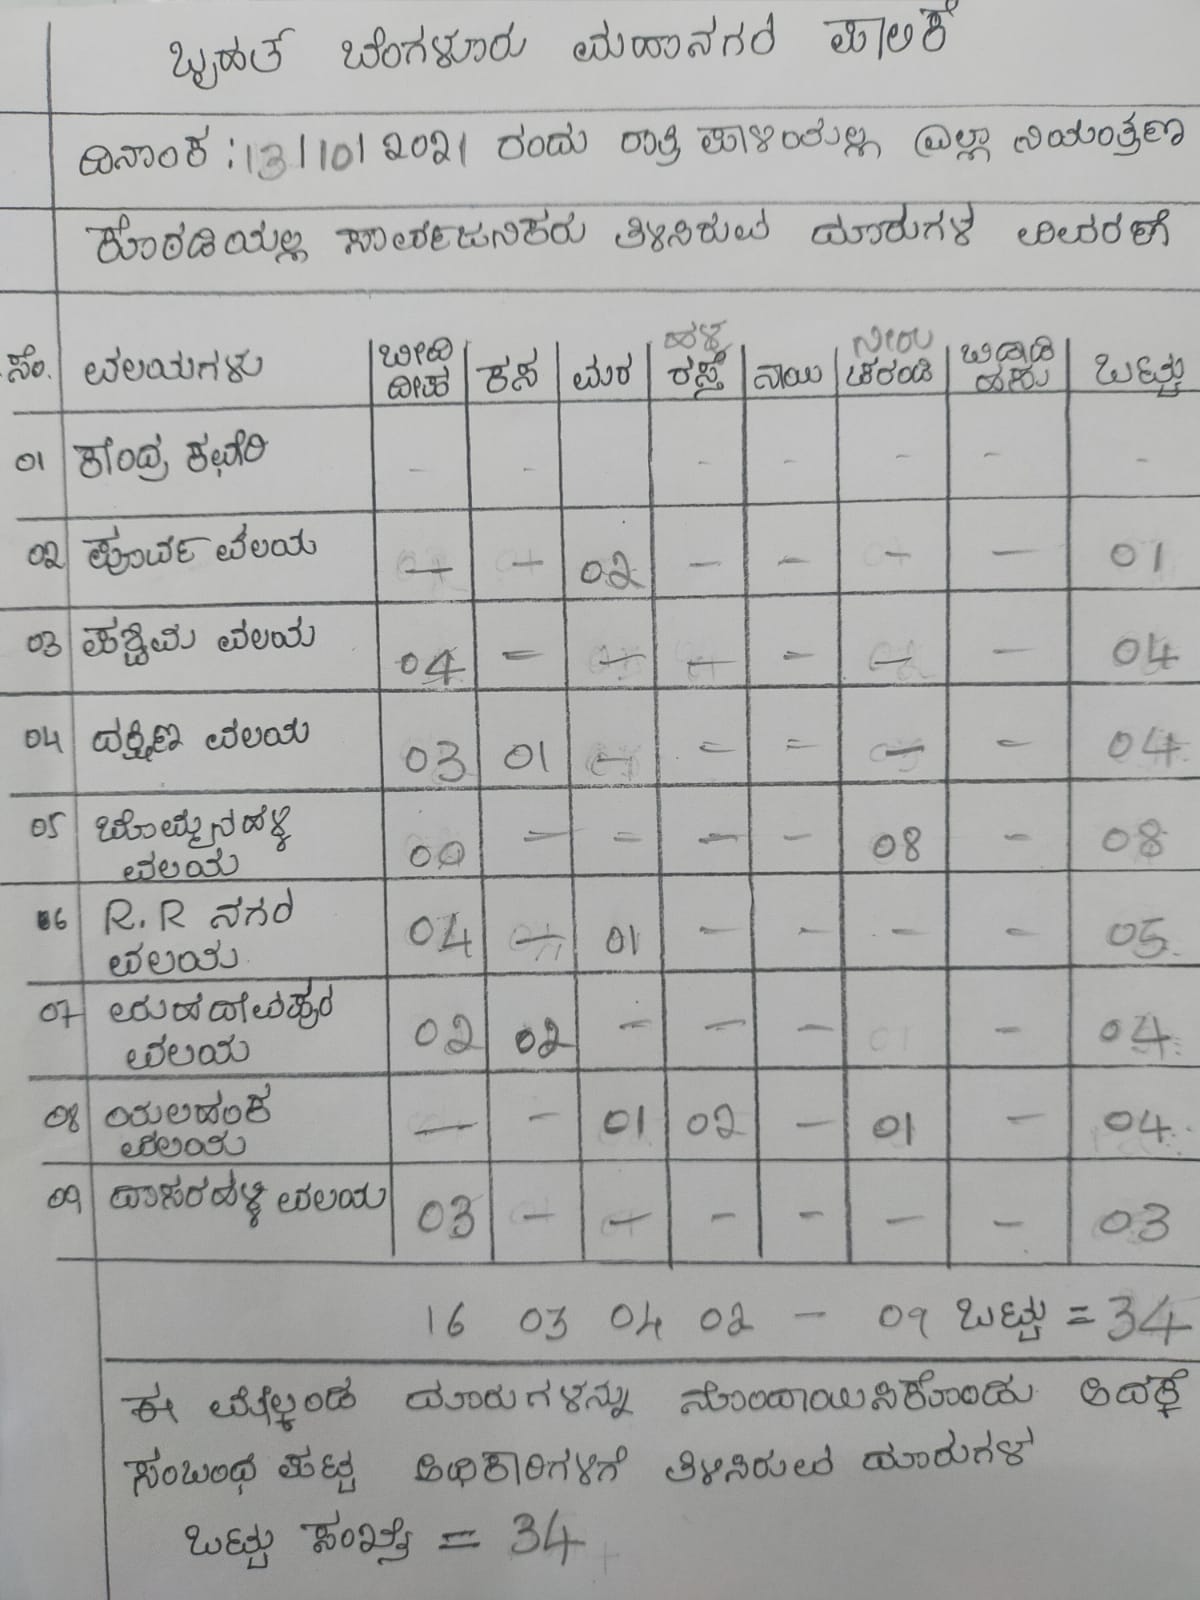 ಬೃಹತ್ ಬೆಂಗಳೂರು ಮಹಾನಗರ ಪಾಲಿಕೆ
ದಿನಾಂಕ : 13/10/2021 ರಂದು ರಾತ್ರಿ ಪಾಳಿಯಲ್ಲಿ ಎಲ್ಲಾ ನಿಯಂತ್ರಣ
ಕೊಠಡಿಯಲ್ಲಿ ಸಾರ್ವಜನಿಕರು ತಿಳಿಸಿರುವ ದೂರುಗಳ ವಿವರಣೆ
ಸಂ. ವಲಯಗಳು ಬೀದಿ ದೀಪ ಕಸ ಮರ ಹಳ್ಳ ರಸ್ತೆ ನಾಯಿ ನೀರು ಚರಂಡಿ ಬಿಡಾಡಿ ಹಸು ಒಟ್ಟು
01 ಕೇಂದ್ರ ಕಛೇರಿ - - - - - - -
02 ಪೂರ್ವ ವಲಯ — — 02 — — — — 01
03 ಪಶ್ಚಿಮ ವಲಯ 04 — — — — — — 04
04 ದಕ್ಷಿಣ ವಲಯ 03 01 — — — — — 04
05 ಬೊಮ್ಮನಹಳ್ಳಿ ವಲಯ 00 — — — — 08 — 08
06 R.R ನಗರ ವಲಯ 04 — 01 — — — — 05
07 ಮಹದೇವಪುರ ವಲಯ 02 02 — — — 01 — 04
08 ಯಲಹಂಕ ವಲಯ — — 01 02 — 01 — 04
09 ದಾಸರಹಳ್ಳಿ ವಲಯ 03 — — — — — — 03
16 03 04 02 — 09 ಒಟ್ಟು = 34
ಈ ಮೇಲ್ಕಂಡ ದೂರುಗಳನ್ನು ನೊಂದಾಯಿಸಿಕೊಂಡು ಅದಕ್ಕೆ
ಸಂಬಂಧ ಪಟ್ಟ ಅಧಿಕಾರಿಗಳಿಗೆ ತಿಳಿಸಿರುವ ದೂರುಗಳ
ಒಟ್ಟು ಸಂಖ್ಯೆ = 34